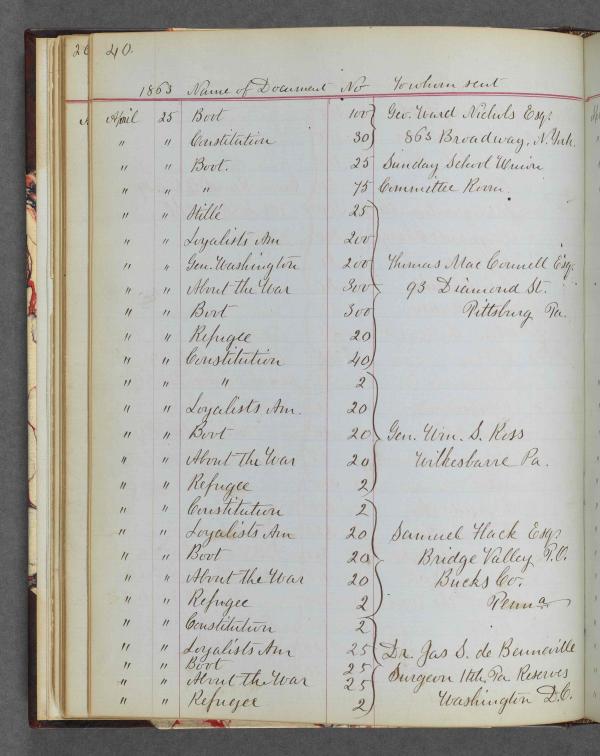 40.
1863 Name of Document No To whom sent
April 25 Boot 100 Geo. Ward Nichols Esqr
" " Constitution 30 863 Broadway, N. York.
" " Boot. 25 Sunday School Union
" " " 75 Committee Room
" " Hillé 25
" " Loyalists Am 200
" " Gen. Washington 200 Thomas MacConnell Esqr
" " About the War 300 93 Diamond St.
" " Boot 300 Pittsburg Pa.
" " Refugee 20
" " Constitution 40
" " " 2
" " Loyalists Am. 20
" " Boot 20 Gen. Wm. S. Ross
" " About the War 20 Wilkesbarre Pa.
" " Refugee 2
" " Constitution 2
" " Loyalists Am 20 Samuel Hack Esqr
" " Boot 20 Bridge Valley P.O.
" " About the War 20 Bucks Co.
" " Refugee 2 Penna
" " Constitution 2
" " Loyalists Am 25 Dr. Jas S. de Benneville
" " Boot 25 Surgeon 11th Pa Reserves
" " About the War 25 Washington D.C.
" " Refugee 2